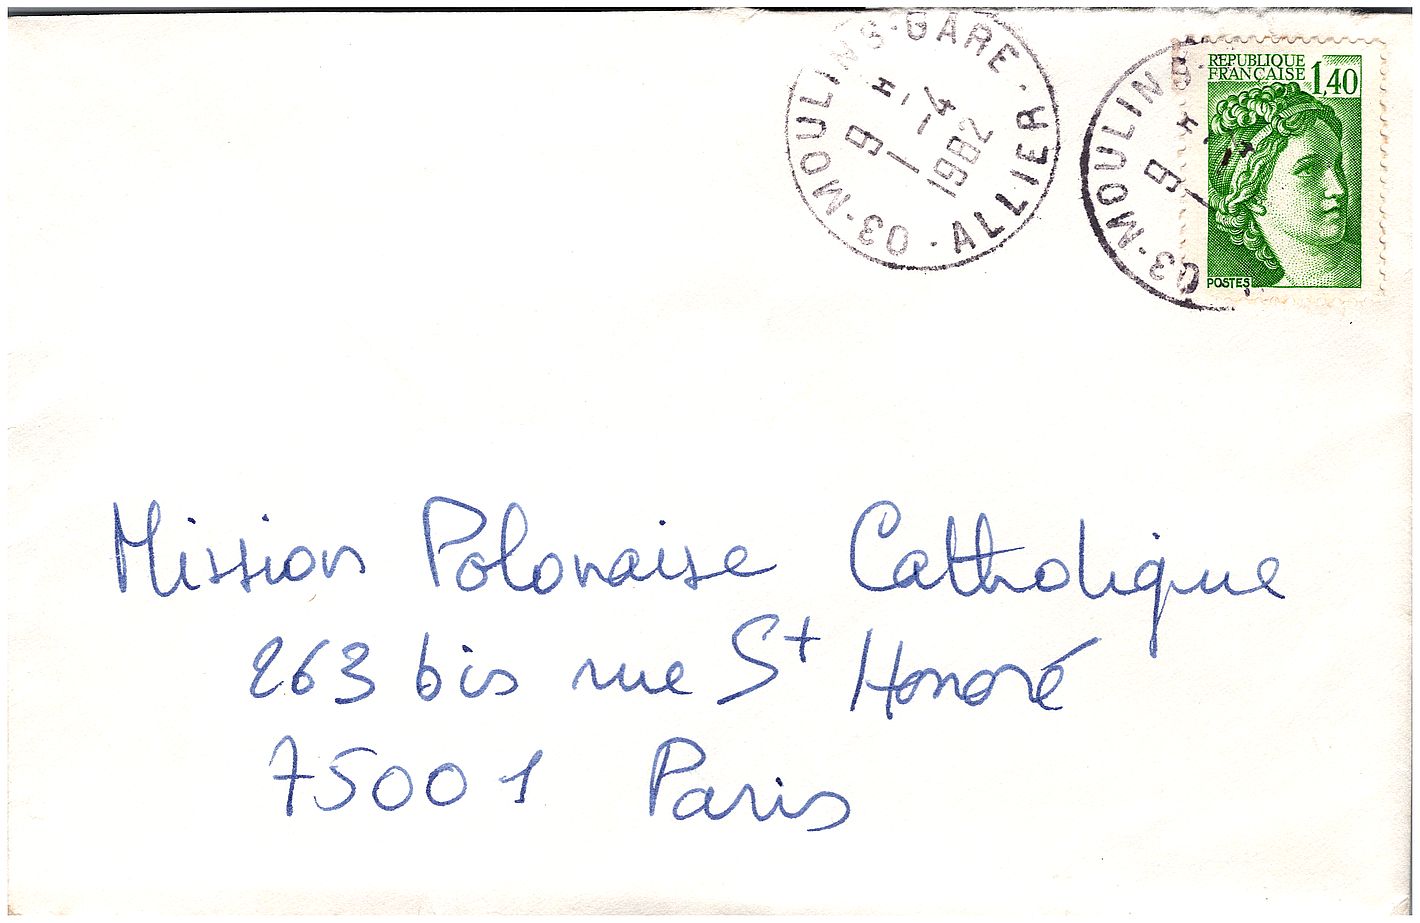 03-MOULINS-GARE · ALLIER
9 H
1 - 4
1982
03-MOULINS
9 H
REPUBLIQUE
FRANÇAISE 1,40
POSTES
Mission Polonaise Catholique
263 bis rue St Honoré
75001 Paris